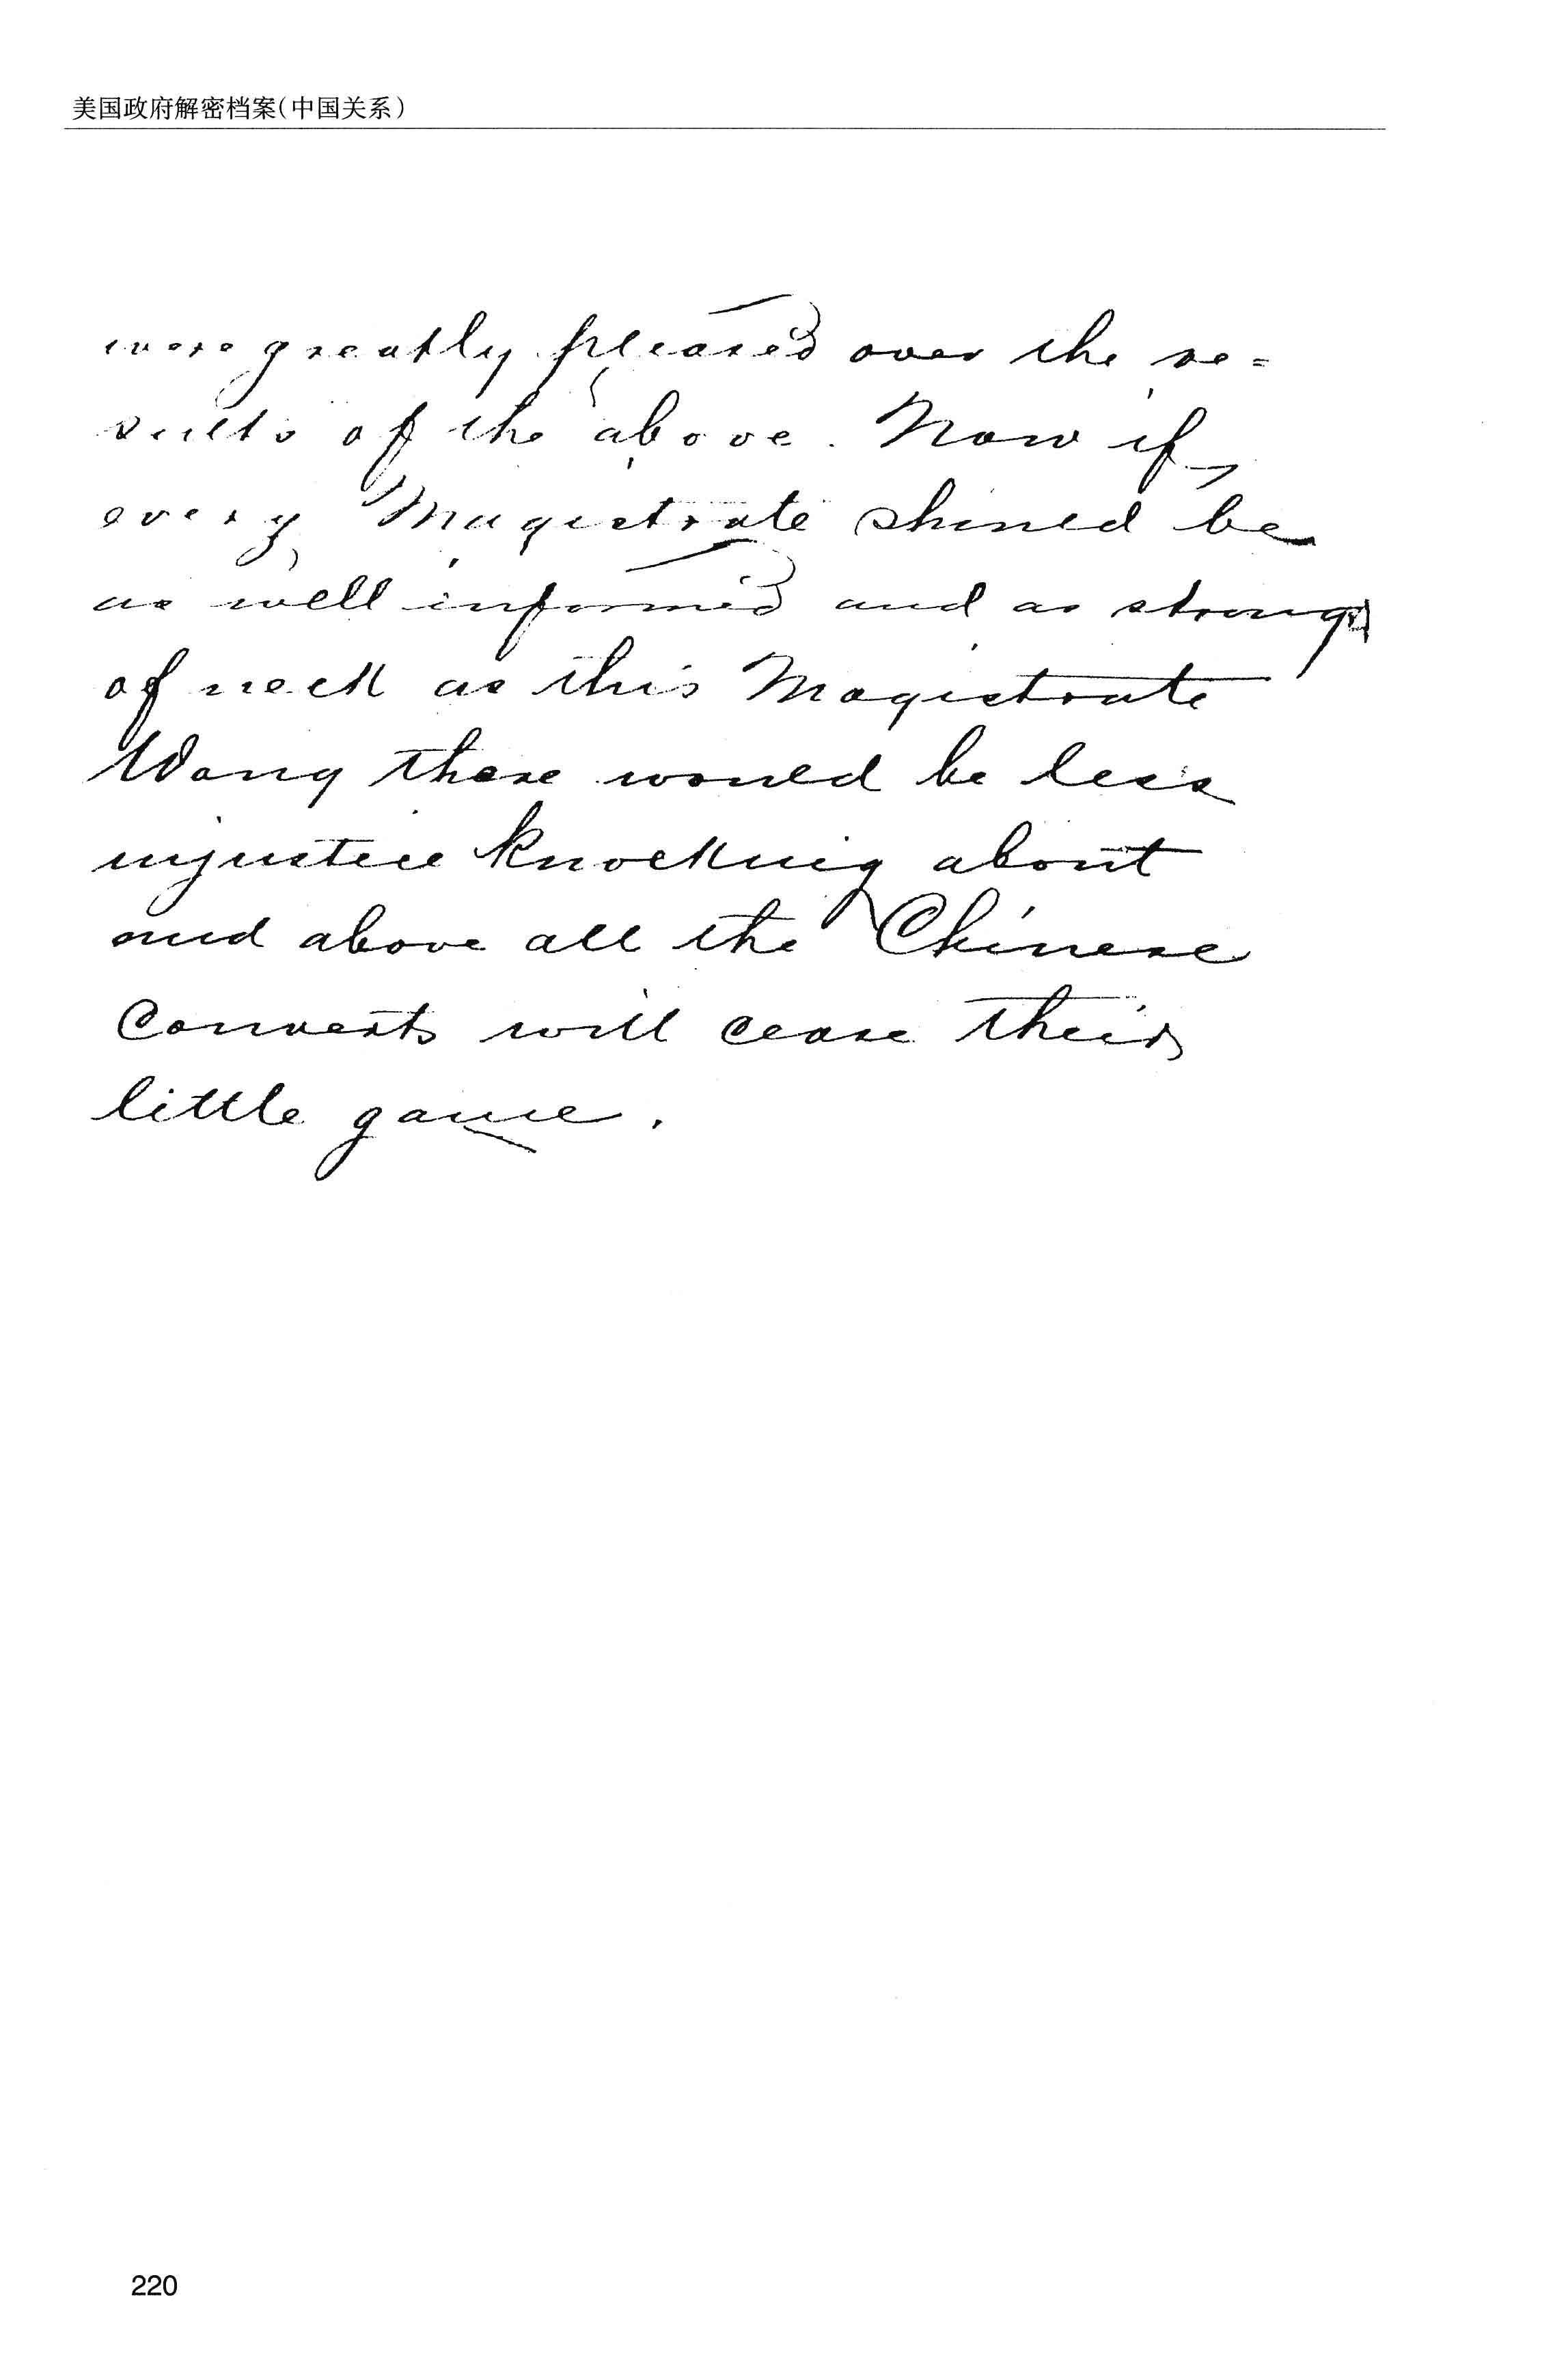 美国政府解密档案(中国关系)
were greatly pleased over the re=
sults of the above. Now if
every Magistrate should be
as well informed and as strong
of neck as this Magistrate
Wang there would be less
injustice knocking about
and above all the Chinese
Converts will cease their
little game.
220